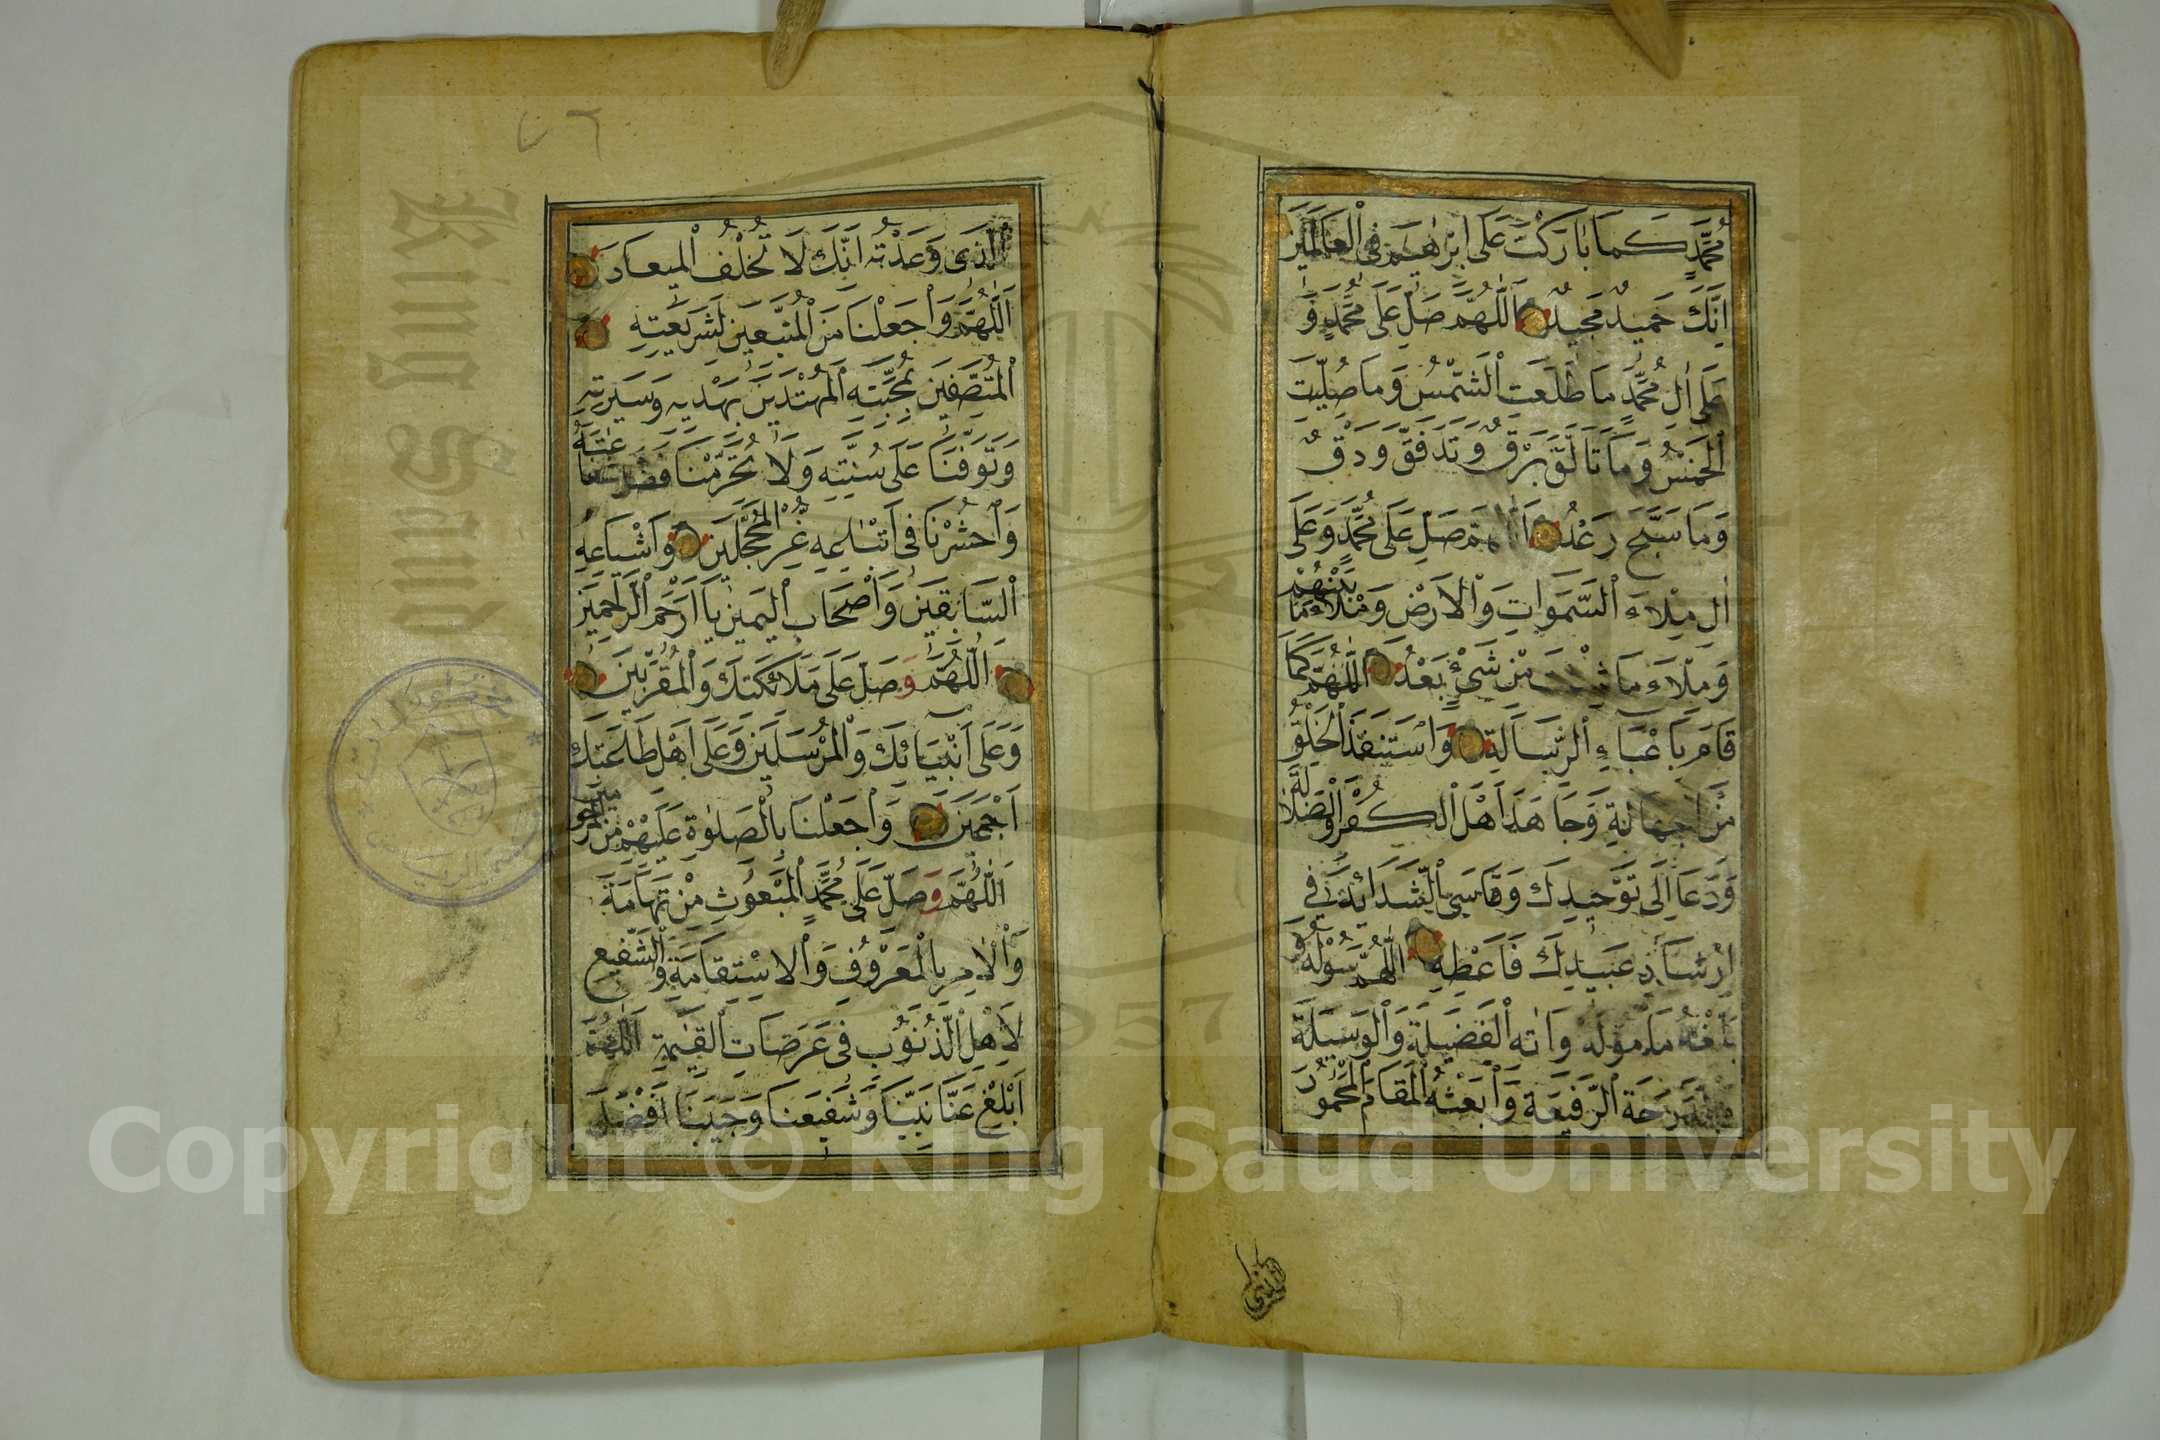 مُحَمَّدٍ كَمَا بَارَكْتَ عَلَى اِبْرٰهِيمَ فِى الْعَالَمِينَ
اِنَّكَ حَمِيدٌ مَجِيدٌ اَللّٰهُمَّ صَلِّ عَلَى مُحَمَّدٍ وَ
عَلَى اٰلِ مُحَمَّدٍ مَا طَلَعَتِ الشَّمْسُ وَمَا صُلِّيَتِ
الْخَمْسُ وَمَا تَاَلَّقَ بَرْقٌ وَتَدَفَّقَ وَدْقٌ
وَمَا سَبَّحَ رَعْدٌ اَللّٰهُمَّ صَلِّ عَلَى مُحَمَّدٍ وَعَلَى
اٰلِ مِلْاءَ السَّمَوَاتِ وَالْاَرْضِ وَمِلْاءَ مَا بَيْنَهُمَا
وَمِلْاءَ مَا شِئْتَ مِنْ شَىْءٍ بَعْدُ اَللّٰهُمَّ كَمَا
قَامَ بِاَعْبَاءِ الرِّسَالَةِ وَاسْتَنْقَذَ الْخَلْقَ
مِنَ الْجَهَالَةِ وَجَاهَدَ اَهْلَ الْكُفْرِ وَالضَّلَالَةِ
وَدَعَا اِلَى تَوْحِيدِكَ وَقَاسَى الشَّدَائِدَ فِى
اِرْشَادِ عَبِيدِكَ فَاَعْطِهِ اللّٰهُمَّ سُؤْلَهُ وَ
بَلِّغْهُ مَاْمُولَهُ وَاٰتِهِ الْفَضِيلَةَ وَالْوَسِيلَةَ
وَالدَّرَجَةَ الرَّفِيعَةَ وَابْعَثْهُ الْمَقَامَ الْمَحْمُودَ
الَّذِى
٧٦
الَّذِى وَعَدْتَهُ اِنَّكَ لَا تُخْلِفُ الْمِيعَادَ
اَللّٰهُمَّ وَاجْعَلْنَا مِنَ الْمُتَّبِعِينَ لِشَرِيعَتِهِ
الْمُتَّصِفِينَ بِمَحَبَّتِهِ الْمُهْتَدِينَ بِهَدْيِهِ وَسِيرَتِهِ
وَتَوَفَّنَا عَلَى سُنَّتِهِ وَلَا تَحْرِمْنَا فَضْلَ
وَاحْشُرْنَا فِى اَتْبَاعِهِ غُرِّ الْمُحَجَّلِينَ وَاَشْيَاعِهِ
السَّابِقِينَ وَاَصْحَابِ الْيَمِينِ يَا اَرْحَمَ الرَّاحِمِينَ
اَللّٰهُمَّ وَصَلِّ عَلَى مَلَائِكَتِكَ وَالْمُقَرَّبِينَ
وَعَلَى اَنْبِيَائِكَ وَالْمُرْسَلِينَ وَعَلَى اَهْلِ طَاعَتِكَ
اَجْمَعِينَ وَاجْعَلْنَا بِالصَّلٰوةِ عَلَيْهِمْ مِنَ الْمَرْحُومِينَ
اَللّٰهُمَّ وَصَلِّ عَلَى مُحَمَّدٍ الْمَبْعُوثِ مِنْ تِهَامَةَ
وَالْاٰمِرِ بِالْمَعْرُوفِ وَالْاِسْتِقَامَةِ وَالشَّفِيعِ
لِاَهْلِ الذُّنُوبِ فِى عَرَصَاتِ الْقِيٰمَةِ اَللّٰهُمَّ
اَبْلِغْ عَنَّا نَبِيَّنَا وَشَفِيعَنَا وَحَبِيبَنَا اَفْضَلَ
King Saud
1957
Copyright © King Saud University